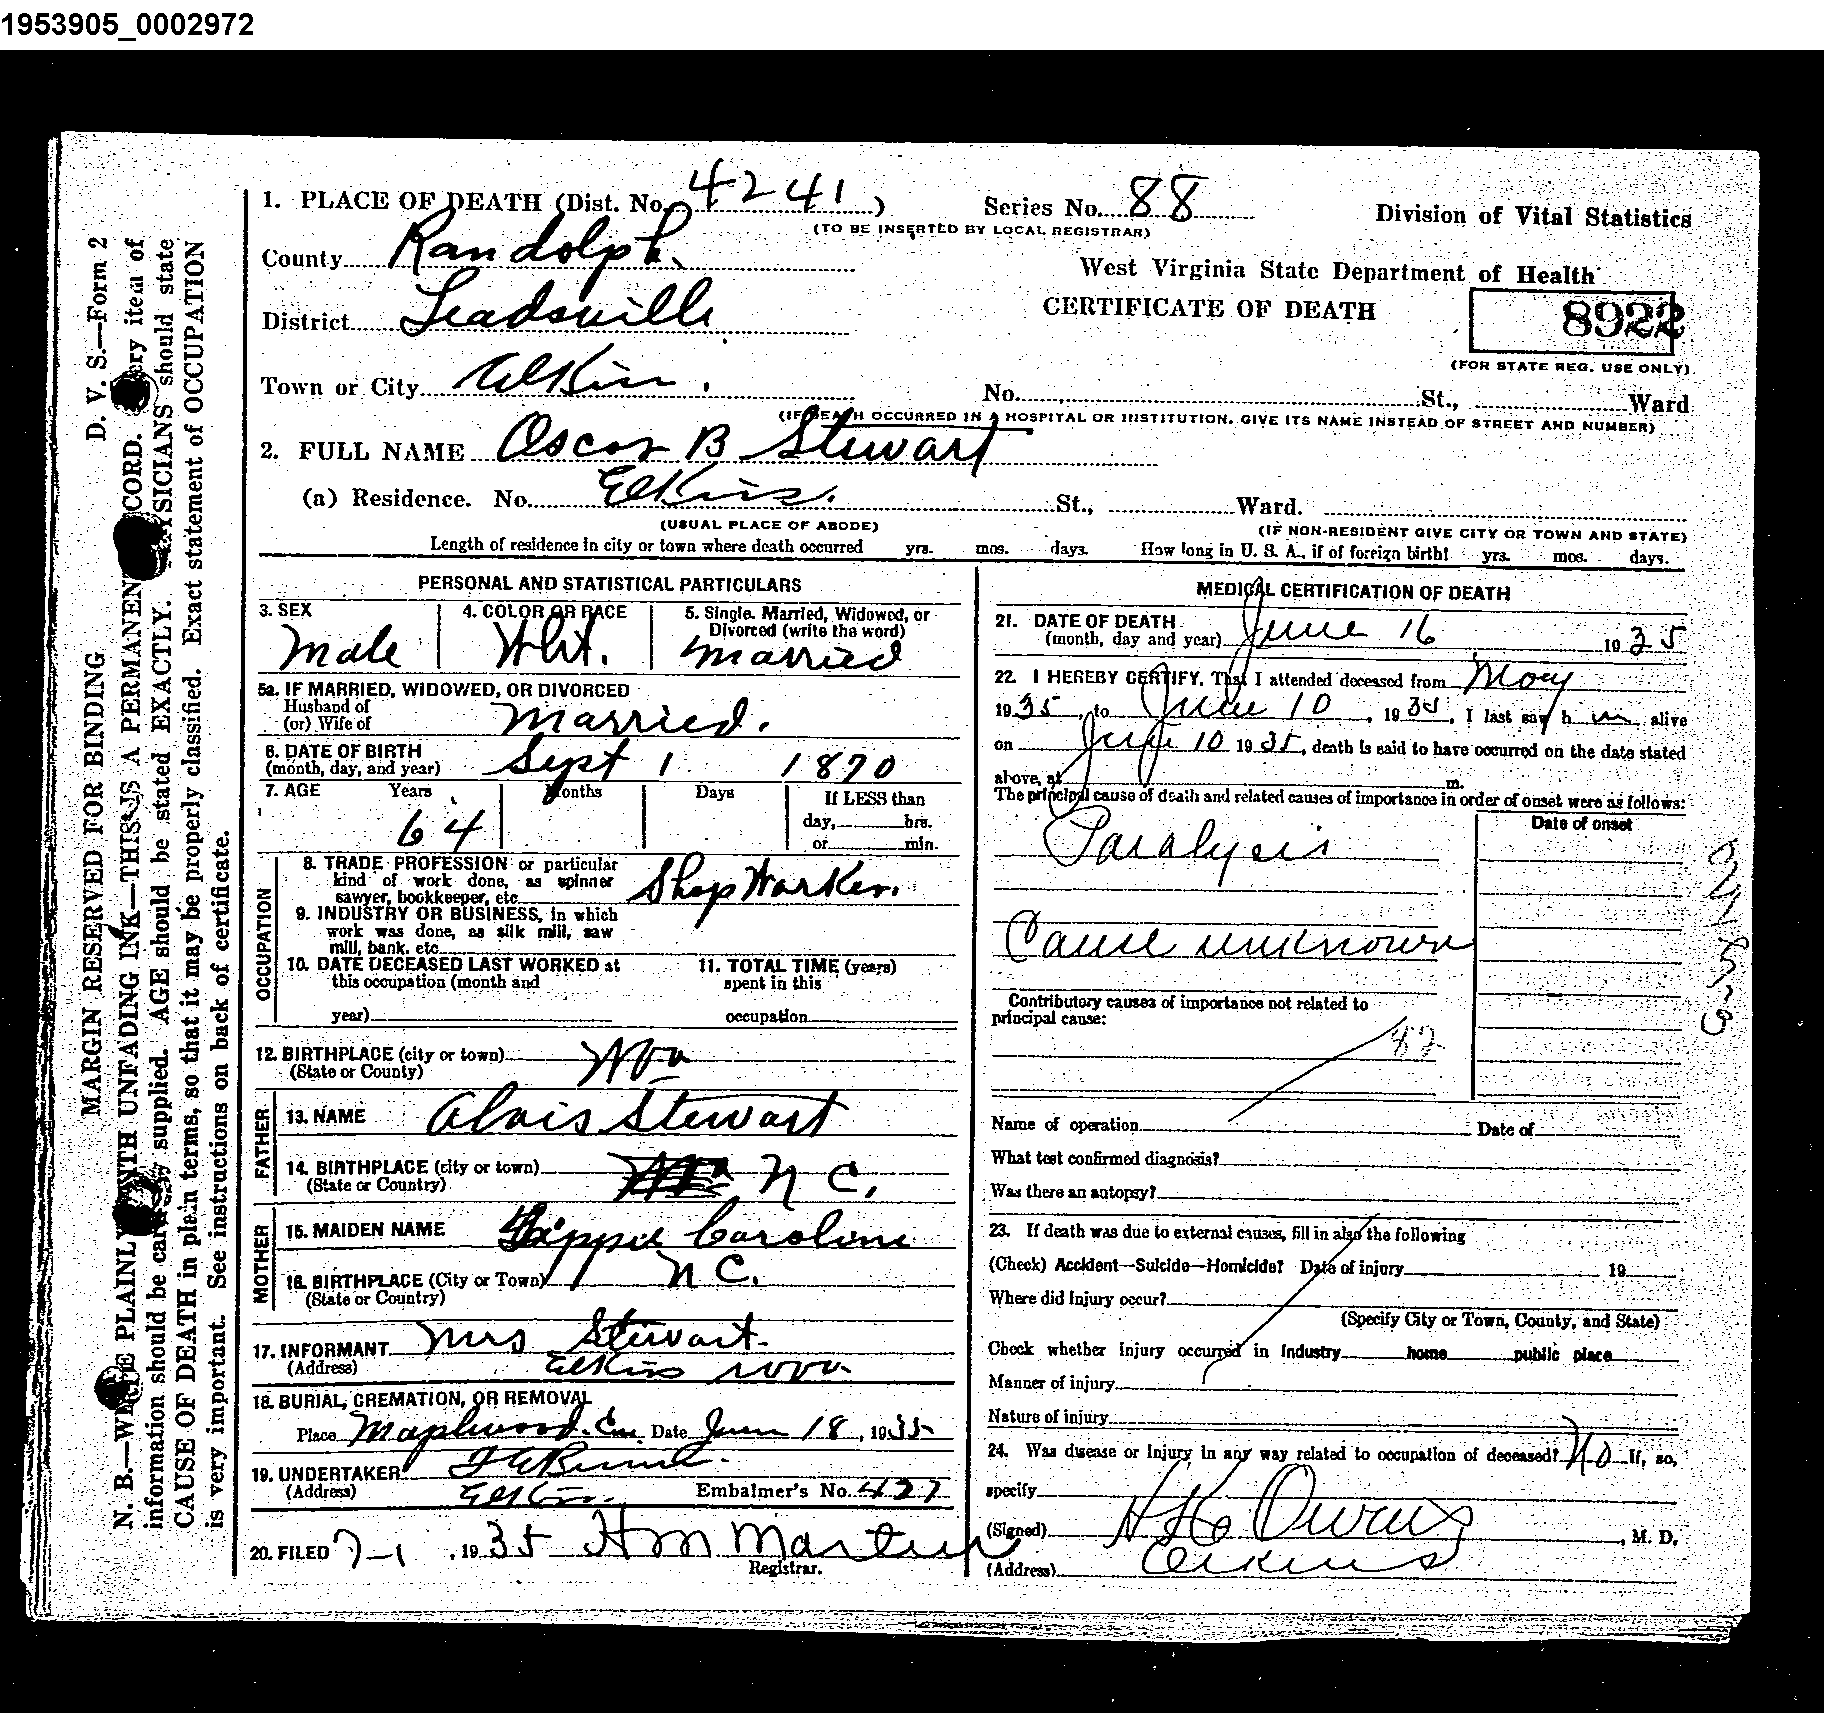 1953905_0002972
1. PLACE OF DEATH (Dist. No. 4241) Series No. 88
(TO BE INSERTED BY LOCAL REGISTRAR)
Division of Vital Statistics
County Randolph.
West Virginia State Department of Health
District Leadsville
CERTIFICATE OF DEATH
8922
(FOR STATE REG. USE ONLY)
Town or City Elkins. No. St., Ward
(IF DEATH OCCURRED IN A HOSPITAL OR INSTITUTION, GIVE ITS NAME INSTEAD OF STREET AND NUMBER)
2. FULL NAME Oscar B Stewart
(a) Residence. No. Elkins. St., Ward.
(USUAL PLACE OF ABODE) (IF NON-RESIDENT GIVE CITY OR TOWN AND STATE)
Length of residence in city or town where death occurred yrs. mos. days. How long in U. S. A., if of foreign birth? yrs. mos. days.
PERSONAL AND STATISTICAL PARTICULARS
3. SEX 4. COLOR OR RACE 5. Single, Married, Widowed, or
Divorced (write the word)
Male Wht. Married
5a. IF MARRIED, WIDOWED, OR DIVORCED
Husband of
(or) Wife of Married.
6. DATE OF BIRTH
(month, day, and year) Sept 1 1870
7. AGE Years Months Days If LESS than
64 day, hrs.
or min.
OCCUPATION
8. TRADE PROFESSION or particular
kind of work done, as spinner
sawyer, bookkeeper, etc. Shop Worker.
9. INDUSTRY OR BUSINESS, in which
work was done, as silk mill, saw
mill, bank, etc.
10. DATE DECEASED LAST WORKED at
this occupation (month and
year)
11. TOTAL TIME (years)
spent in this
occupation
12. BIRTHPLACE (city or town) W Va
(State or County)
FATHER
13. NAME Alvis Stewart
14. BIRTHPLACE (city or town) N C.
(State or Country)
MOTHER
15. MAIDEN NAME Caroline
16. BIRTHPLACE (City or Town) N C.
(State or Country)
17. INFORMANT Mrs Stewart
(Address) Elkins W Va
18. BURIAL, CREMATION, OR REMOVAL
Place Maplewood Cem. Date June 18, 1935
19. UNDERTAKER
(Address) Elkins. Embalmer's No. 427
20. FILED 7-1, 1935 H M Martin
Registrar.
MEDICAL CERTIFICATION OF DEATH
21. DATE OF DEATH
(month, day and year) June 16 1935
22. I HEREBY CERTIFY, That I attended deceased from May
1935, to June 10, 1935, I last saw him alive
on June 10 1935, death is said to have occurred on the date stated
above, at m.
The principal cause of death and related causes of importance in order of onset were as follows:
Date of onset
Paralysis
Cause unknown
Contributory causes of importance not related to
principal cause:
82
Name of operation Date of
What test confirmed diagnosis?
Was there an autopsy?
23. If death was due to external causes, fill in also the following
(Check) Accident—Suicide—Homicide? Date of injury 19
Where did injury occur?
(Specify City or Town, County, and State)
Check whether injury occurred in Industry home public place
Manner of injury
Nature of injury
24. Was disease or injury in any way related to occupation of deceased? No If, so,
specify
(Signed) Owens, M. D.
(Address) Elkins
MARGIN RESERVED FOR BINDING D. V. S.—Form 2
N. B.—WRITE PLAINLY WITH UNFADING INK—THIS IS A PERMANENT RECORD. Every item of
information should be carefully supplied. AGE should be stated EXACTLY. PHYSICIANS should state
CAUSE OF DEATH in plain terms, so that it may be properly classified. Exact statement of OCCUPATION
is very important. See instructions on back of certificate.